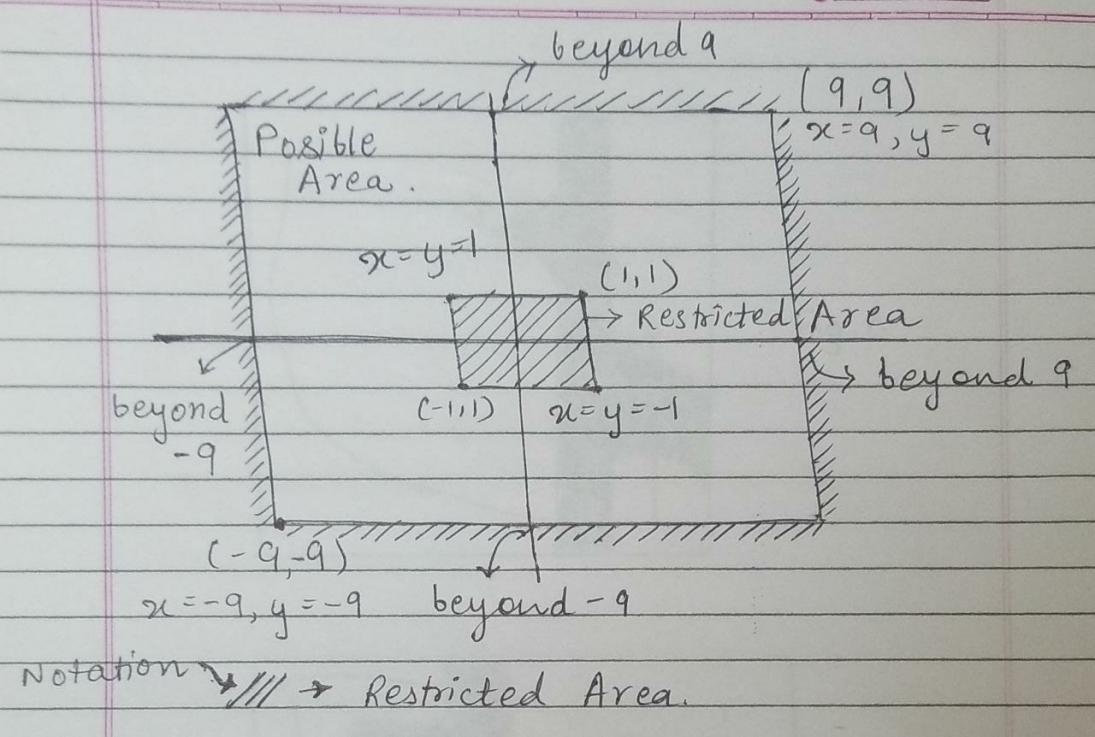 beyond 9
(9,9)
x=9, y=9
Posible
Area.
x=y=1
(1,1)
→ Restricted Area
beyond 9
beyond
-9
(-1,1)
x=y=-1
(-9,-9)
x=-9, y=-9
beyond -9
Notation ↘ /// → Restricted Area.